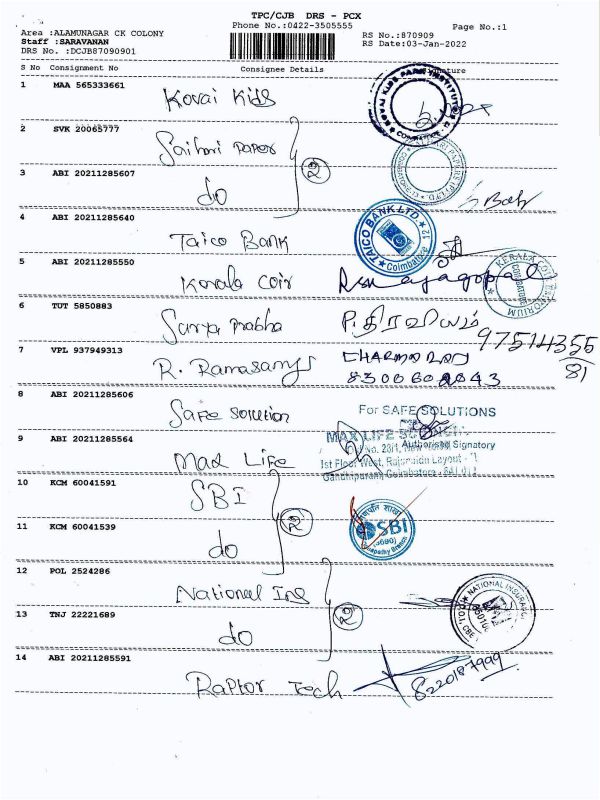 TPC/CJB DRS - PCX
Phone No.:0422-3505555
Page No.:1
Area :ALAMUNAGAR CK COLONY
Staff :SARAVANAN
DRS No. :DCJB87090901
RS No.:870909
RS Date:03-Jan-2022
S No Consignment No Consignee Details Signature
1 MAA 565333661 Kovai Kids
KOVAI KIDS PARK INSTITUTE COIMBATORE
2 SVK 20065777 Saihari paper
3 ABI 20211285607 do
2
4 ABI 20211285640 Taico Bank
TAICO BANK LTD. Coimbatore 12
5 ABI 20211285550 Kerala Coir
KERALA COIR EMPORIUM COIMBATORE
6 TUT 5850883 Surya prabha
97514355
81
7 VPL 937949313 R. Ramasamy
8300602843
8 ABI 20211285606 Safe solution
For SAFE SOLUTIONS
Authorised Signatory
9 ABI 20211285564 Max Life
MAX LIFE
1st Floor West,
10 KCM 60041591 SBI
11 KCM 60041539 do
2
SBI
12 POL 2524286 National Ins
13 TNJ 22221689 do
2
NATIONAL INSURANCE
14 ABI 20211285591 Raptor Tech
8220187999